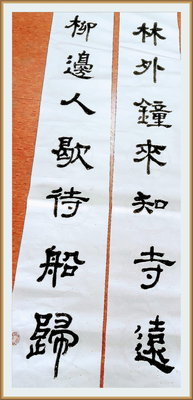 林外鐘來知寺遠
柳邊人歇待船歸